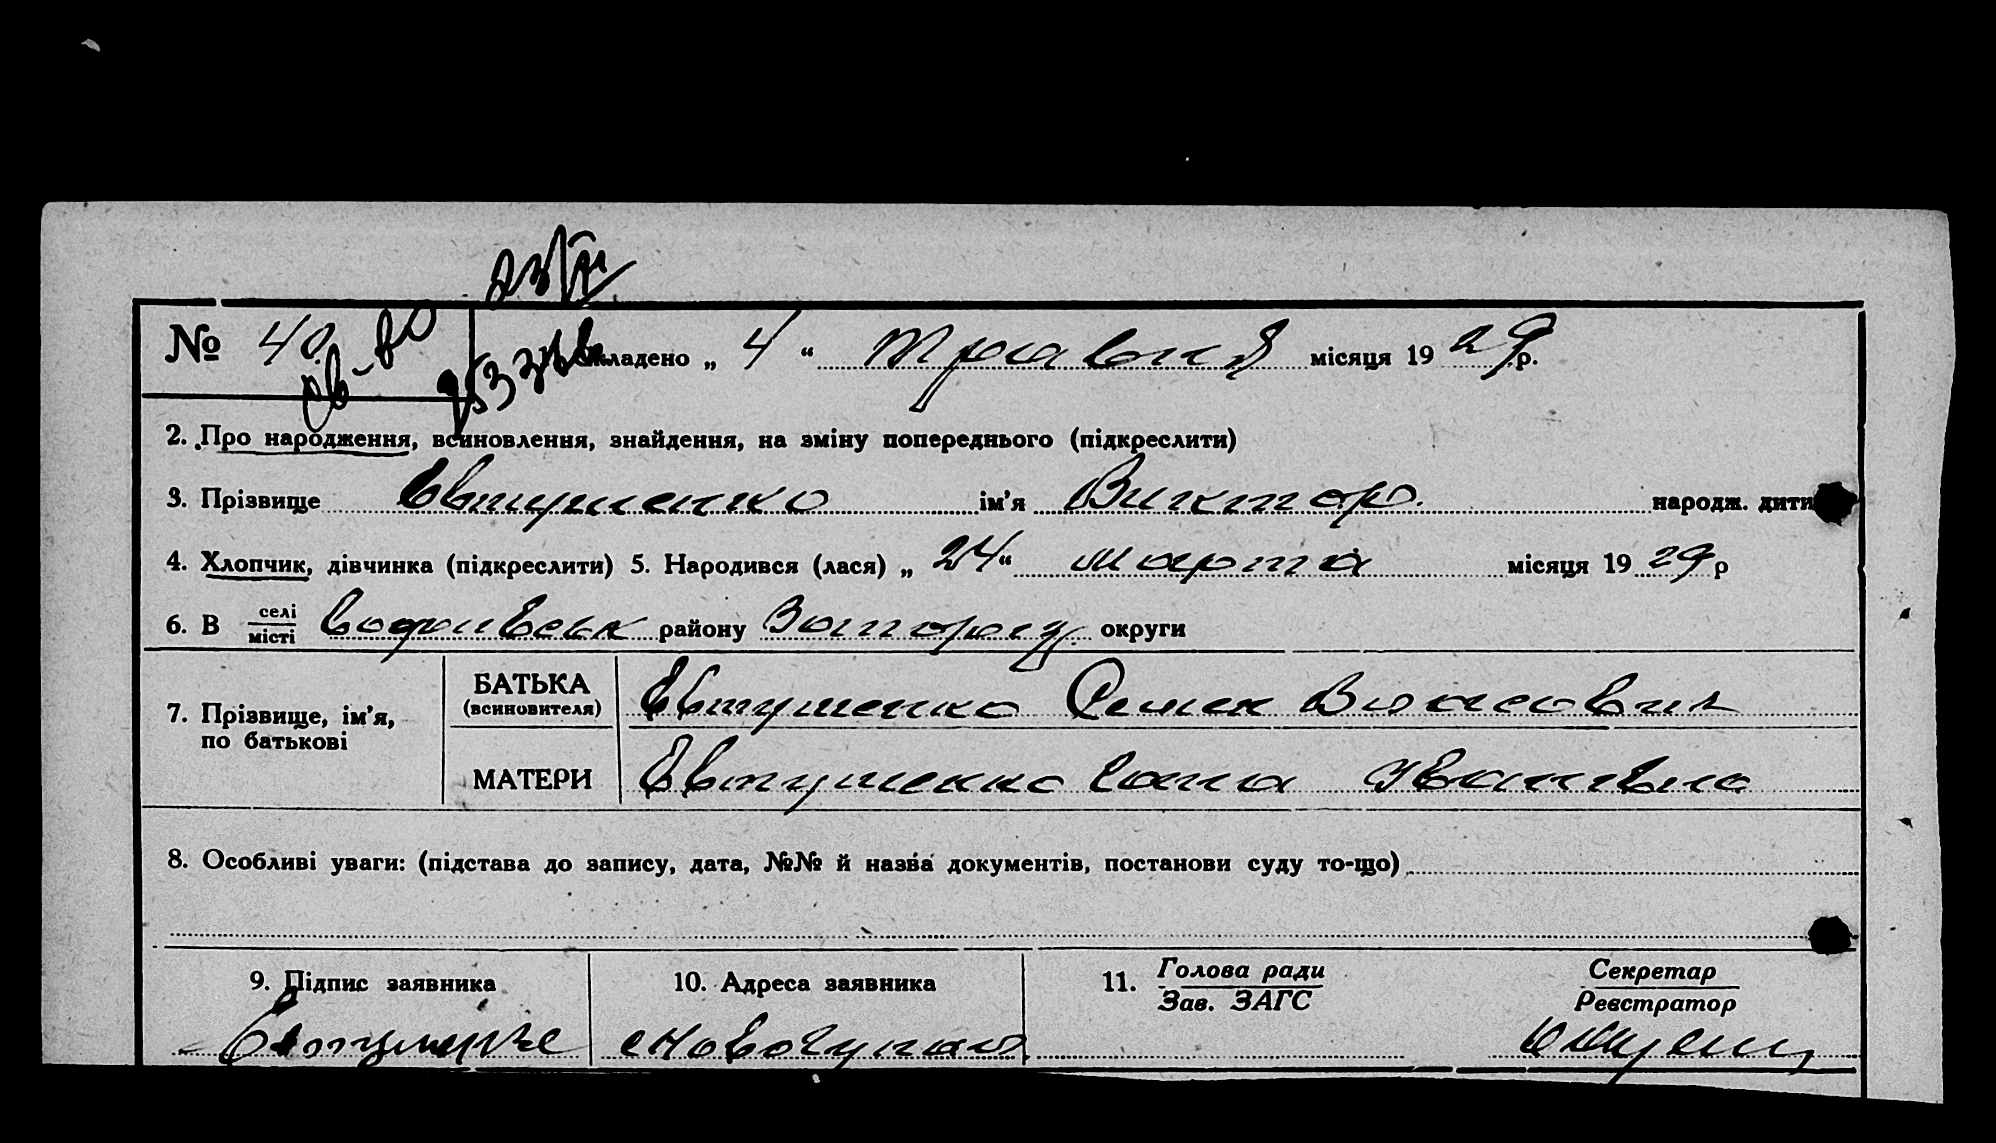 № 40 Складено „ 4 “ травня місяця 19 29 р.
2. Про народження, всиновлення, знайдення, на зміну попереднього (підкреслити)
3. Прізвище Євтушенко ім’я Виктор. народж. дити
4. Хлопчик, дівчинка (підкреслити) 5. Народився (лася) „ 24 “ марта місяця 19 29 р
6. В селі
місті району округи
7. Прізвище, ім’я,
по батькові
БАТЬКА
(всиновителя)
Євтушенко Семен Власович
МАТЕРИ Євтушенко Ганна Іванівна
8. Особливі уваги: (підстава до запису, дата, №№ й назва документів, постанови суду то-що)
9. Підпис заявника 10. Адреса заявника 11. Голова ради
Зав. ЗАГС
Секретар
Реєстратор